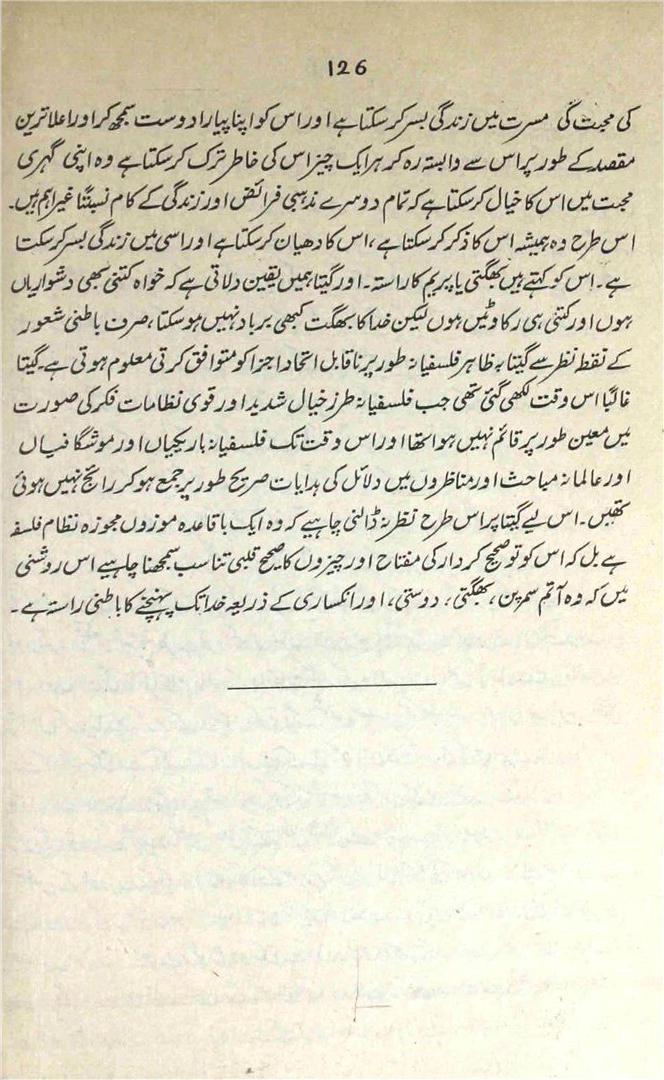 126
کی محبت کی مسرت میں زندگی بسر کر سکتا ہے اور اس کو اپنا پیارا دوست سمجھ کر اور اعلا ترین
مقصد کے طور پر اس سے وابستہ رہ کر ہر ایک چیز اس کی خاطر ترک کر سکتا ہے وہ اپنی گہری
محبت میں اس کا خیال کر سکتا ہے کہ تمام دوسرے مذہبی فرائض اور زندگی کے کام نسبتًا غیر اہم ہیں۔
اس طرح وہ ہمیشہ اس کا ذکر کر سکتا ہے، اس کا دھیان کر سکتا ہے اور اسی میں زندگی بسر کر سکتا
ہے۔ اس کو کہتے ہیں بھگتی یا پریم کا راستہ۔ اور گیتا ہمیں یقین دلاتی ہے کہ خواہ کتنی بھی دشواریاں
ہوں اور کتنی ہی رکاوٹیں ہوں لیکن خدا کا بھگت کبھی برباد نہیں ہو سکتا، صرف باطنی شعور
کے نقطہ نظر سے گیتا بہ ظاہر فلسفیانہ طور پر ناقابل اتحاد اجزا کو متوافق کرتی معلوم ہوتی ہے۔ گیتا
غالبًا اس وقت لکھی گئی تھی جب فلسفیانہ طرز خیال شدید اور قوی نظامات فکر کی صورت
میں معین طور پر قائم نہیں ہوا تھا اور اس وقت تک فلسفیانہ باریکیاں اور موشگافیاں
اور عالمانہ مباحث اور مناظروں میں دلائل کی ہدایات صریح طور پر جمع ہو کر رائج نہیں ہوئی
تھیں۔ اس لیے گیتا پر اس طرح نظر نہ ڈالنی چاہیے کہ وہ ایک باقاعدہ موزوں مجوزہ نظام فلسفہ
ہے بل کہ اس کو تو صحیح کردار کی مفتاح اور چیزوں کا صحیح قلبی تناسب سمجھنا چاہیے اس روشنی
میں کہ وہ آتم سمرپن، بھگتی، دوستی، اور انکساری کے ذریعہ خدا تک پہنچنے کا باطنی راستہ ہے۔